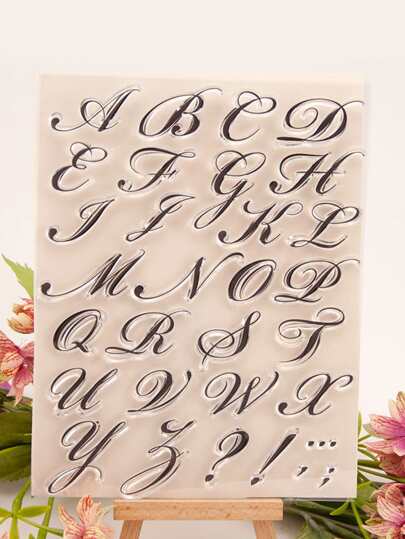 A B C D
E F G H
I J K L
M N O P
Q R S T
U V W X
Y Z ? ! ''' , ;